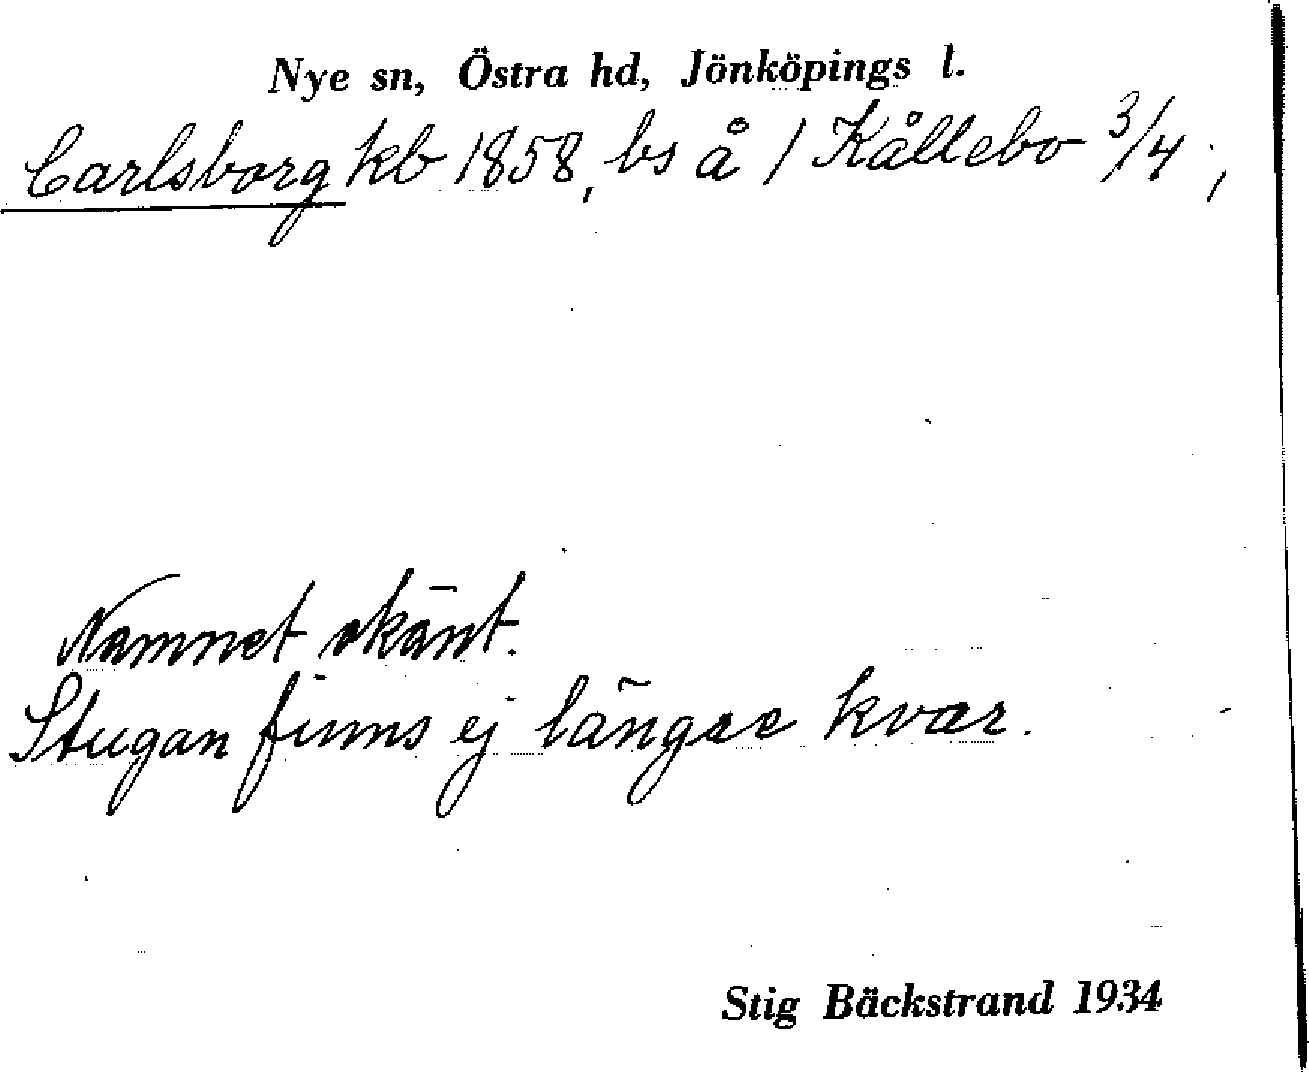 Nye sn, Östra hd, Jönköpings l.
Carlsborg kb 1858, bs å / Kållebo 3/4 ,
Namnet okänt.
Stugan finns ej längre kvar.
Stig Bäckstrand 1934